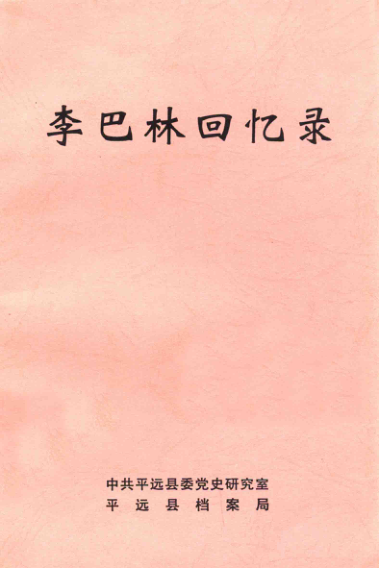 李巴林回忆录
中共平远县委党史研究室
平远县档案局